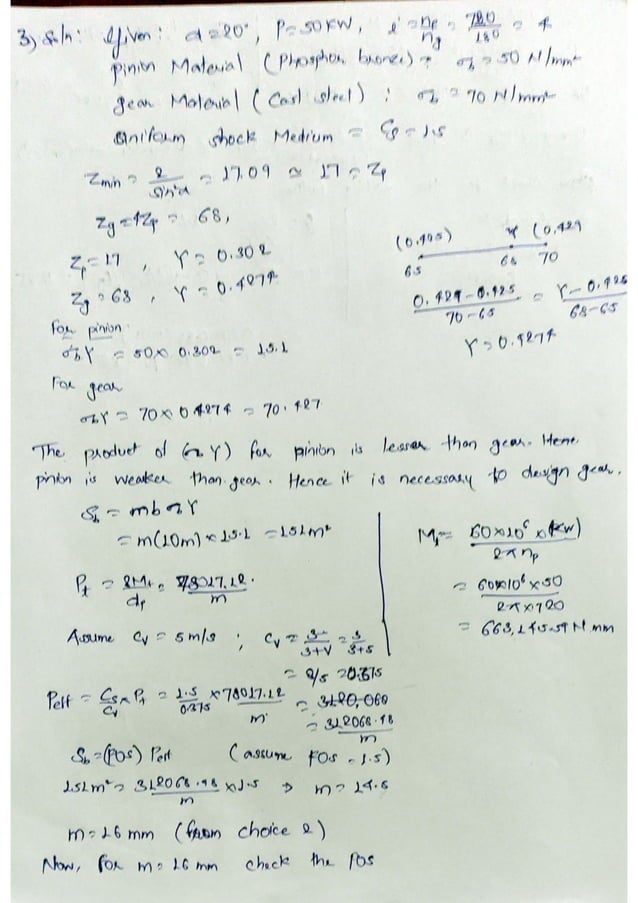 3) Soln: Given: α = 20°, P = 50 KW, i = np/ng = 720/180 = 4
pinion Material (Phosphor bronze) : σb = 50 N/mm²
gear Material (Cast steel) : σb = 70 N/mm²
Uniform shock Medium = Cs = 1.5
Zmin = 2/sin²α = 17.09 ≈ 17 = Zp
Zg = 4Zp = 68,
Zp = 17 , Y = 0.302
Zg = 68 , Y = 0.4274
(0.425) Y (0.429
65 68 70
(0.429 - 0.425)/(70-65) = (Y - 0.425)/(68-65)
Y = 0.4274
For pinion.
σbY = 50 × 0.302 = 15.1
For gear
σbY = 70 × 0.4274 = 70.427
The product of (σbY) for pinion is lesser than gear. Hene
pinion is weaker than gear. Hence it is necessary to design gear.
Sb = mbσbY
= m(10m) × 15.1 = 151m²
Pt = 2Mt/dp = 78017.12/m
Mt = 60×10⁶ × (kw)/2πnp
= 60×10⁶ × 50/2π×720
= 663,145.59 N mm
Assume Cv = 5 m/s ; Cv = 3/(3+V) = 3/(3+5)
= 0.375
Peff = Cs/Cv × Pt = 1.5/0.375 × 78017.12/m
= 312068.48/m
Sb = (FOS) Peff (assume FOS = 1.5)
151m² = 312068.48/m × 1.5 ⇒ m = 14.6
m = 16 mm (from choice 2)
Now, for m = 16 mm check the FOS